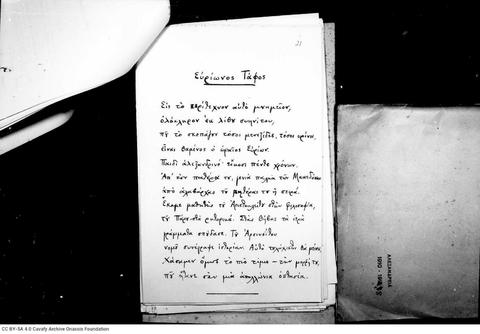 21
Εὐρίωνος Τάφος
Εἰς τὸ περίτεχνον αὐτὸ μνημεῖον,
ὁλόκληρον ἐκ λίθου συηνίτου,
ποὺ τὸ σκεπάζουν τόσοι μενεξέδες, τόσοι κρίνοι,
εἶναι θαμένος ὁ ὡραῖος Εὐρίων.
Παιδὶ ἀλεξανδρινό· εἴκοσι πέντε χρόνων.
Ἀπ' τὸν πατέρα του, γενιὰ παληὰ τῶν Μακεδόνων·
ἀπὸ ἀλαβάρχας τῆς μητέρας του ἡ σειρά.
Ἔκαμε μαθητὴς τοῦ Ἀριστοκλείτου στὴν φιλοσοφία,
τοῦ Πάρου στὰ ρητορικά. Στὰς Θήβας τὰ ἱερὰ
γράμματα σπούδασε. Τοῦ Ἀρσινοΐτου
νομοῦ συνέγραψε ἱστορίαν. Αὐτὸ τουλάχιστον θὰ μείνει.
Χάσαμεν ὅμως τὸ πιὸ τίμιο — τὴν μορφή του,
ποὺ ἤτανε σὰν μιὰ ἀπολλώνια ὀπτασία.
ΑΛΕΞΑΝΔΡΕΙΑ
CC BY-SA 4.0 Cavafy Archive Onassis Foundation